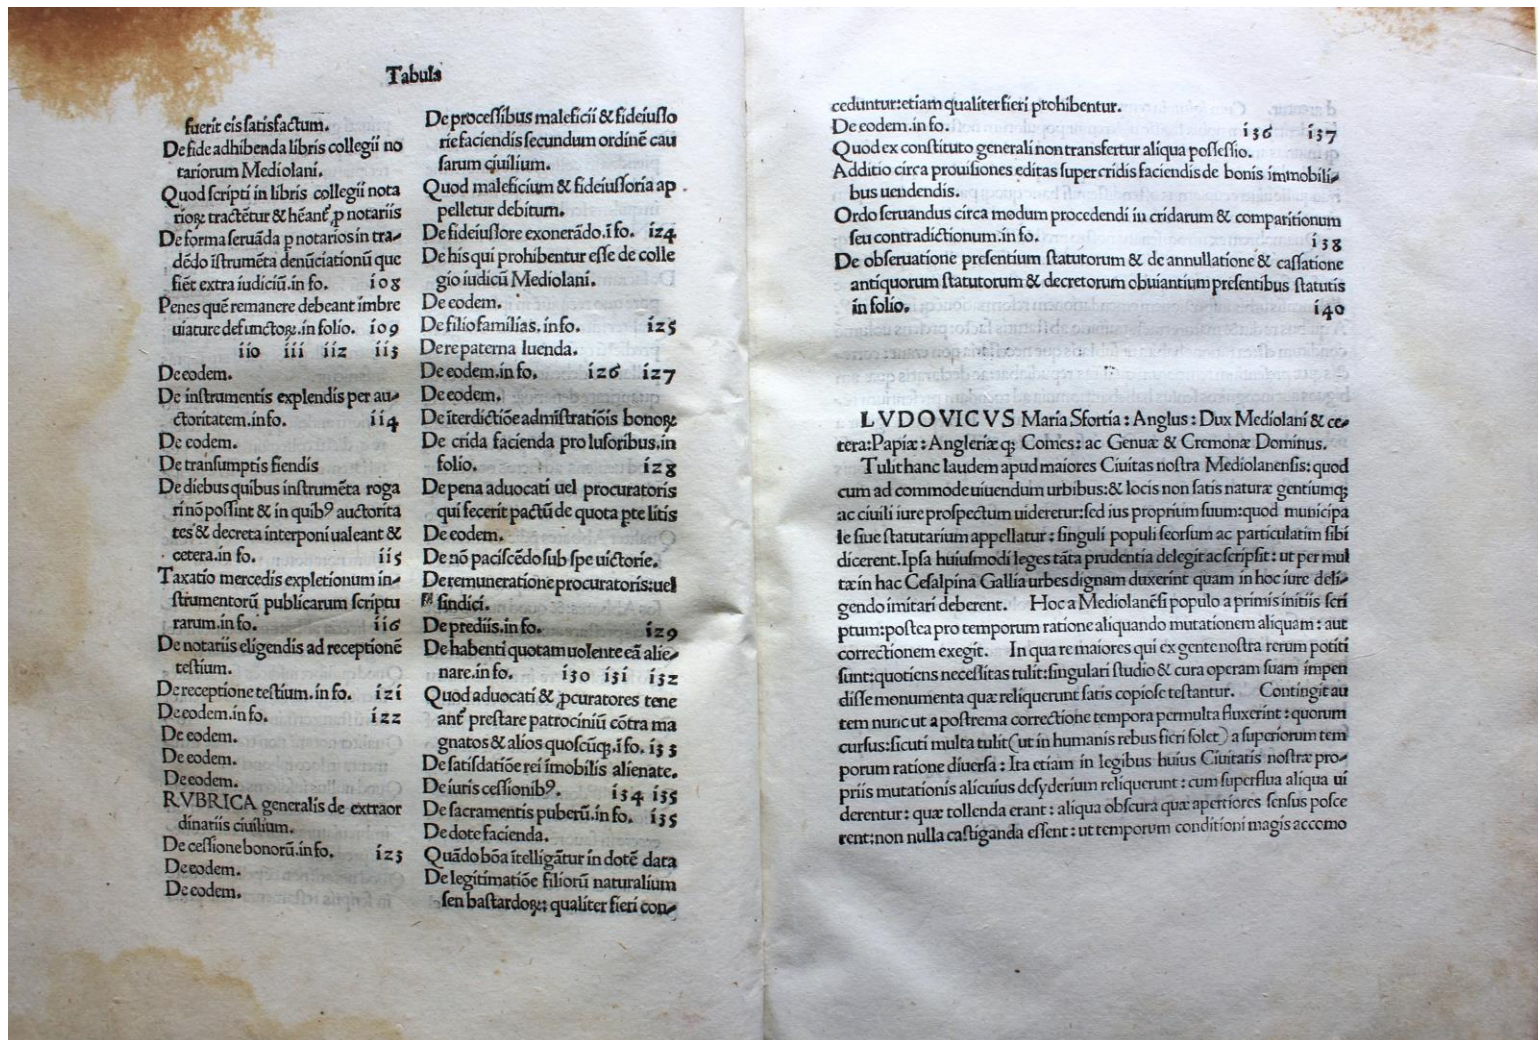 Tabula
fuerit eis satisfactum.
De fide adhibenda libris collegii no
tariorum Mediolani.
Quod scripti in libris collegii nota
rioꝝ tractētur & hēant̄ ꝑ notariis
De forma seruāda p notarios in tra⸗
dēdo īstrumēta denūciationū que
fiēt extra iudiciū.in fo. io8
Penes quē remanere debeant imbre
uiature defunctoꝝ.in folio. io9
iio iii ii2 ii3
De eodem.
De instrumentis explendis per au⸗
ctoritatem.in fo. ii4
De eodem.
De transumptis fiendis
De diebus quibus instrumēta roga
ri nō possint & in quibꝰ auctorita
tes & decreta interponi ualeant &
cetera.in fo. ii5
Taxatio mercedis expletionum in⸗
strumentorū publicarum scriptu
rarum.in fo. ii6
De notariis eligendis ad receptionē
testium.
De receptione testium.in fo. i2i
De eodem.in fo. i22
De eodem.
De eodem.
De eodem.
RVBRICA generalis de extraor
dinariis ciuilium.
De cessione bonorū.in fo. i23
De eodem.
De eodem.
De processibus maleficii & fideiusso
rie faciendis secundum ordinē cau
sarum ciuilium.
Quod maleficium & fideiussoria ap
pelletur debitum.
De fideiussore exonerādo.ī fo. i24
De his qui prohibentur esse de colle
gio iudicū Mediolani.
De eodem.
De filio familias.in fo. i25
De re paterna luenda.
De eodem.in fo. i26 i27
De eodem.
De īterdictiōe admīstratiōis bonoꝝ
De crida facienda pro lusoribus.in
folio. i28
De pena aduocati uel procuratoris
qui fecerit pactū de quota pte litis
De eodem.
De nō paciscēdo sub spe uictorie.
De remuneratione procuratoris:uel
sindici.
De prediis.in fo. i29
De habenti quotam uolente eā alie⸗
nare.in fo. i30 i3i i32
Quod aduocati & ꝓcuratores tene
ant̄ prestare patrociniū cōtra ma
gnatos & alios quoscūqꝫ.ī fo. i33
De satisdatiōe rei īmobilis alienate.
De iuris cessionibꝰ. i34 i35
De sacramentis puberū.in fo. i35
De dote facienda.
Quādo bōa ītelligātur in dotē data
De legitimatiōe filiorū naturalium
seu bastardoꝝ: qualiter fieri con⸗
ceduntur:etiam qualiter fieri prohibentur.
De eodem.in fo. i36 i37
Quod ex constituto generali non transfertur aliqua possessio.
Additio circa prouisiones editas super cridis faciendis de bonis immobili⸗
bus uendendis.
Ordo seruandus circa modum procedendi in cridarum & comparitionum
seu contradictionum:in fo. i38
De obseruatione presentium statutorum & de annullatione & cassatione
antiquorum statutorum & decretorum obuiantium presentibus statutis
in folio. i40
LVDOVICVS Maria Sfortia : Anglus : Dux Mediolani & ce⸗
tera:Papiæ : Angleriæ qꝫ Comes: ac Genuæ & Cremonæ Dominus.
Tulit hanc laudem apud maiores Ciuitas nostra Mediolanensis: quod
cum ad commode uiuendum urbibus:& locis non satis naturæ gentiumqꝫ
ac ciuili iure prospectum uideretur:sed ius proprium suum:quod municipa
le siue statutarium appellatur : singuli populi seorsum ac particulatim sibi
dicerent.Ipsa huiusmodi leges tāta prudentia delegit ac scripsit : ut per mul
tæ in hac Cesalpina Gallia urbes dignam duxerint quam in hoc iure deli⸗
gendo imitari deberent. Hoc a Mediolanēsi populo a primis initiis scri
ptum:postea pro temporum ratione aliquando mutationem aliquam : aut
correctionem exegit. In qua re maiores qui ex gente nostra rerum potiti
sunt:quotiens necessitas tulit:singulari studio & cura operam suam impen
disse monumenta quæ reliquerunt satis copiose testantur. Contingit au
tem nunc ut a postrema correctione tempora permulta fluxerint : quorum
cursus:sicuti multa tulit(ut in humanis rebus fieri solet) a superiorum tem
porum ratione diuersa : Ita etiam in legibus huius Ciuitatis nostræ pro⸗
priis mutationis alicuius desyderium reliquerunt : cum superflua aliqua ui
derentur : quæ tollenda erant : aliqua obscura quæ apertiores sensus posce
rent:non nulla castiganda essent : ut temporum conditioni magis accomo